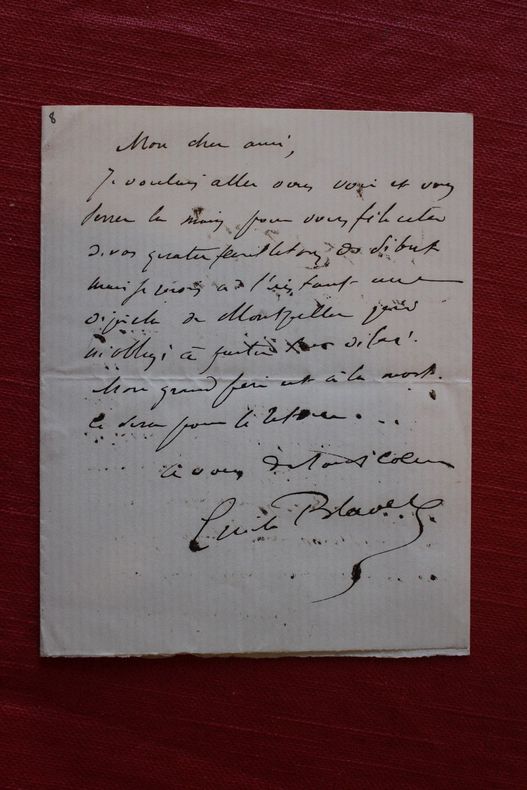 8
Mon cher ami,
Je voulais aller vous voir et vous
serrer la main pour vous féliciter
de vos quatre feuilletons de début
mais je reçois à l'instant une
dépêche de Montpellier qui
m'oblige à partir
Mon grand père est à la mort.
Ce sera pour le retour...
à vous de tout coeur
Emile Blavet